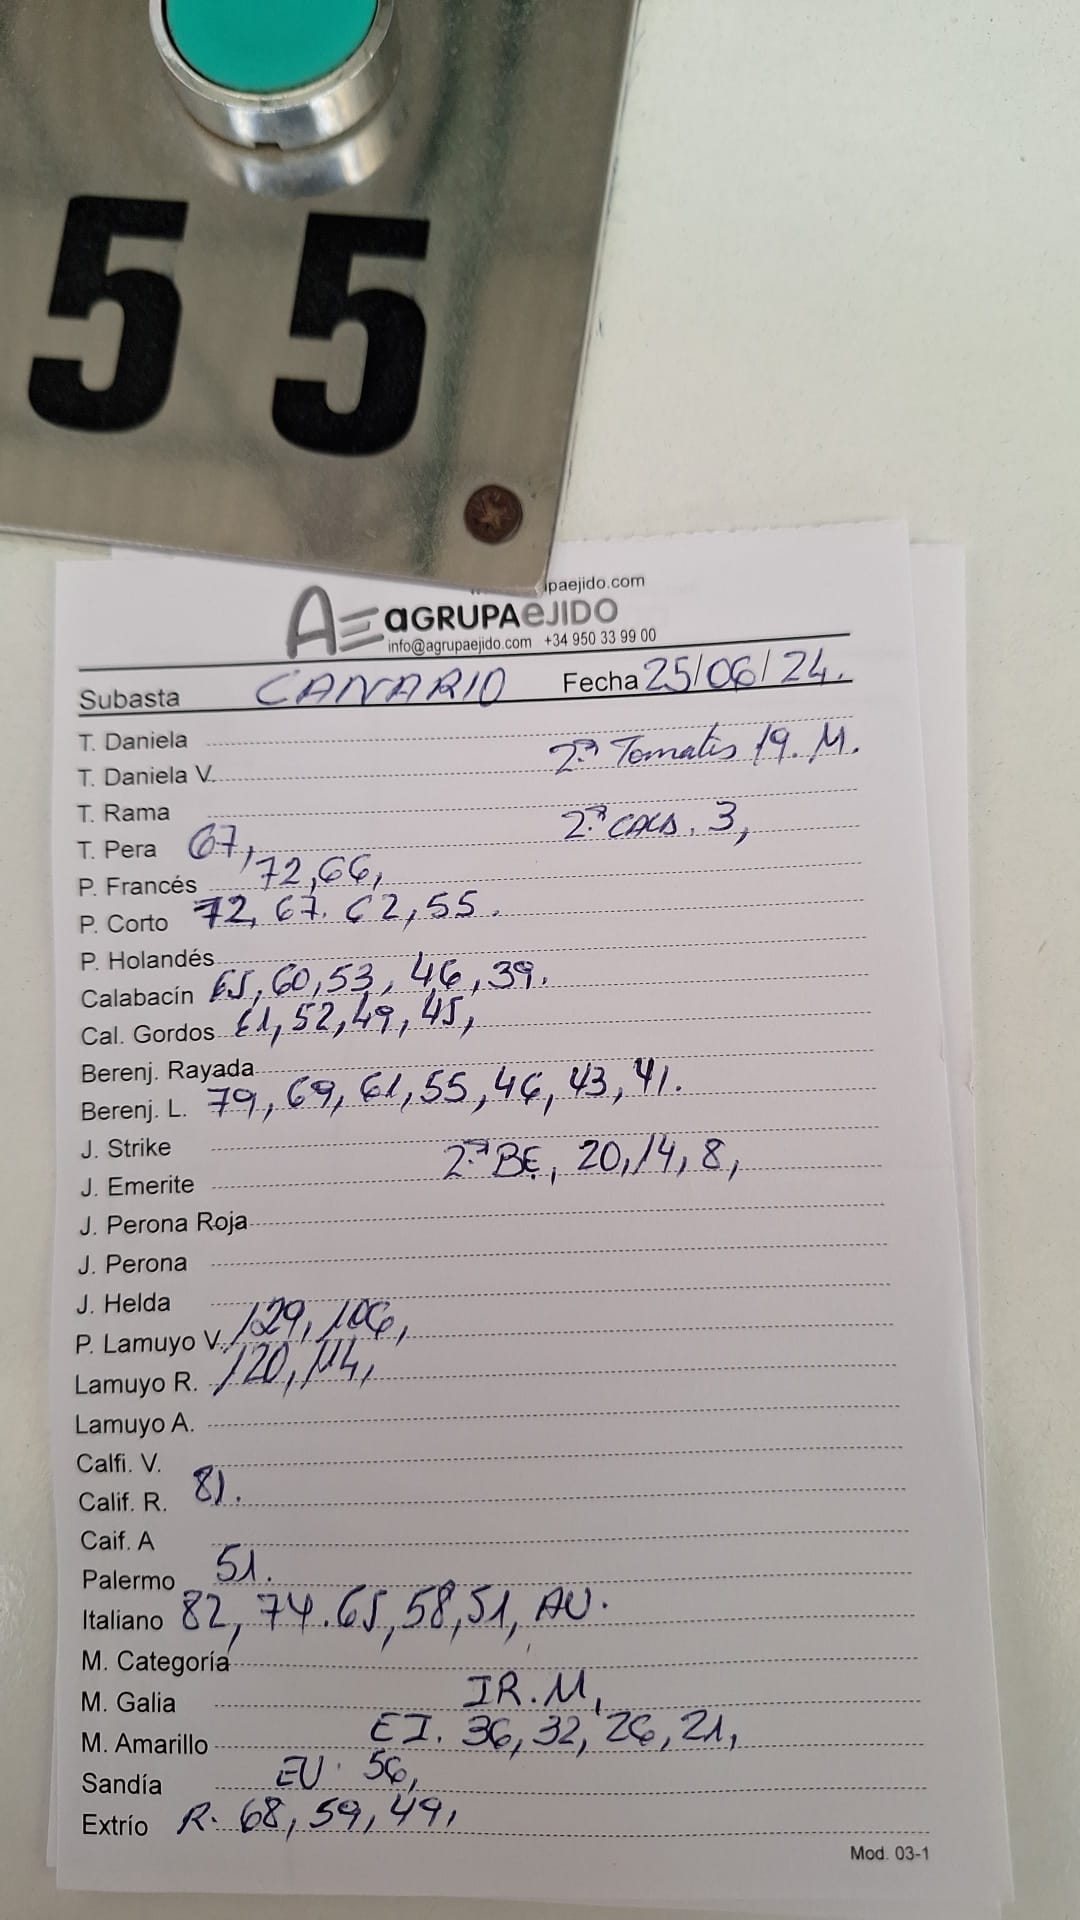 55
ipaejido.com
AE aGRUPAeJIDO
info@agrupaejido.com +34 950 33 99 00
Subasta CANARIO Fecha 25/06/24.
T. Daniela
2ª Tomates 19. M.
T. Daniela V.
T. Rama
2ª CALA. 3,
T. Pera 67,
P. Francés 72,66,
P. Corto 72, 67. 62, 55.
P. Holandés
Calabacín 65, 60, 53, 46, 39.
Cal. Gordos 61, 52, 49, 45,
Berenj. Rayada
Berenj. L. 79, 69, 61, 55, 46, 43, 41.
J. Strike
2ª BE, 20, 14, 8,
J. Emerite
J. Perona Roja
J. Perona
J. Helda
P. Lamuyo V. 129, 106,
Lamuyo R. 120, 114,
Lamuyo A.
Calfi. V.
Calif. R. 81.
Caif. A
Palermo 51.
Italiano 82, 74. 65, 58, 51, AU.
M. Categoría
M. Galia IR. M,
M. Amarillo EI. 36, 32, 26, 21,
Sandía EU. 56,
Extrío R. 68, 59, 49,
Mod. 03-1